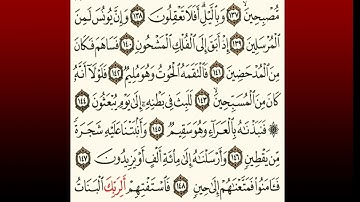 مُّصْبِحِينَ ١٣٧ وَبِالَّيْلِ أَفَلَا تَعْقِلُونَ ١٣٨ وَإِنَّ يُونُسَ لَمِنَ
الْمُرْسَلِينَ ١٣٩ إِذْ أَبَقَ إِلَى الْفُلْكِ الْمَشْحُونِ ١٤٠ فَسَاهَمَ فَكَانَ
مِنَ الْمُدْحَضِينَ ١٤١ فَالْتَقَمَهُ الْحُوتُ وَهُوَ مُلِيمٌ ١٤٢ فَلَوْلَا أَنَّهُ
كَانَ مِنَ الْمُسَبِّحِينَ ١٤٣ لَلَبِثَ فِي بَطْنِهِ إِلَى يَوْمِ يُبْعَثُونَ ١٤٤
۞ فَنَبَذْنَاهُ بِالْعَرَاءِ وَهُوَ سَقِيمٌ ١٤٥ وَأَنْبَتْنَا عَلَيْهِ شَجَرَةً
مِّن يَقْطِينٍ ١٤٦ وَأَرْسَلْنَاهُ إِلَى مِائَةِ أَلْفٍ أَوْ يَزِيدُونَ ١٤٧
فَآمَنُوا فَمَتَّعْنَاهُمْ إِلَى حِينٍ ١٤٨ فَاسْتَفْتِهِمْ أَلِرَبِّكَ الْبَنَاتُ